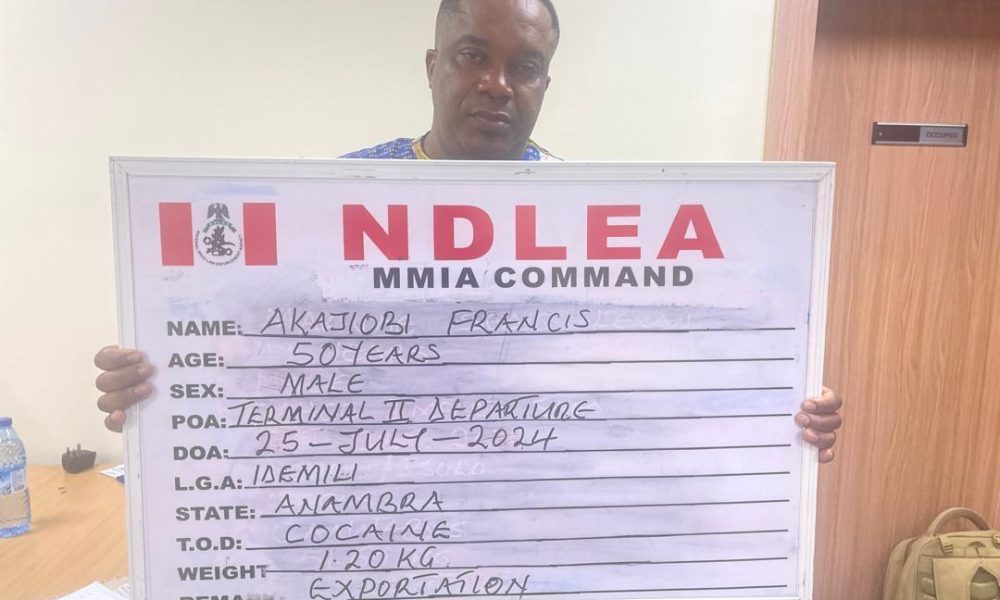 NDLEA
MMIA COMMAND
NAME: AKAJIOBI FRANCIS
AGE: 50 YEARS
SEX: MALE
POA: TERMINAL II DEPARTURE
DOA: 25-JULY-2024
L.G.A: IDEMILI
STATE: ANAMBRA
T.O.D: COCAINE
WEIGHT 1.20KG
REMARK: EXPORTATION
OCCUPIED